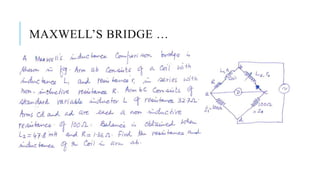 MAXWELL'S BRIDGE …
A Maxwell's inductance Comparison bridge is
shown in fig. Arm ab Consists of a Coil with
inductance L1 and resistance r1 in series with
non-inductive resistance R. Arm bc Consists of
standard variable inductor L of resistance 32.7Ω
Arms Cd and ad are each a non inductive
resistance of 100Ω. Balance is obtained when
L2 = 47.8 mH and R = 1.36Ω. Find the resistance and
inductance of the Coil in arm ab.